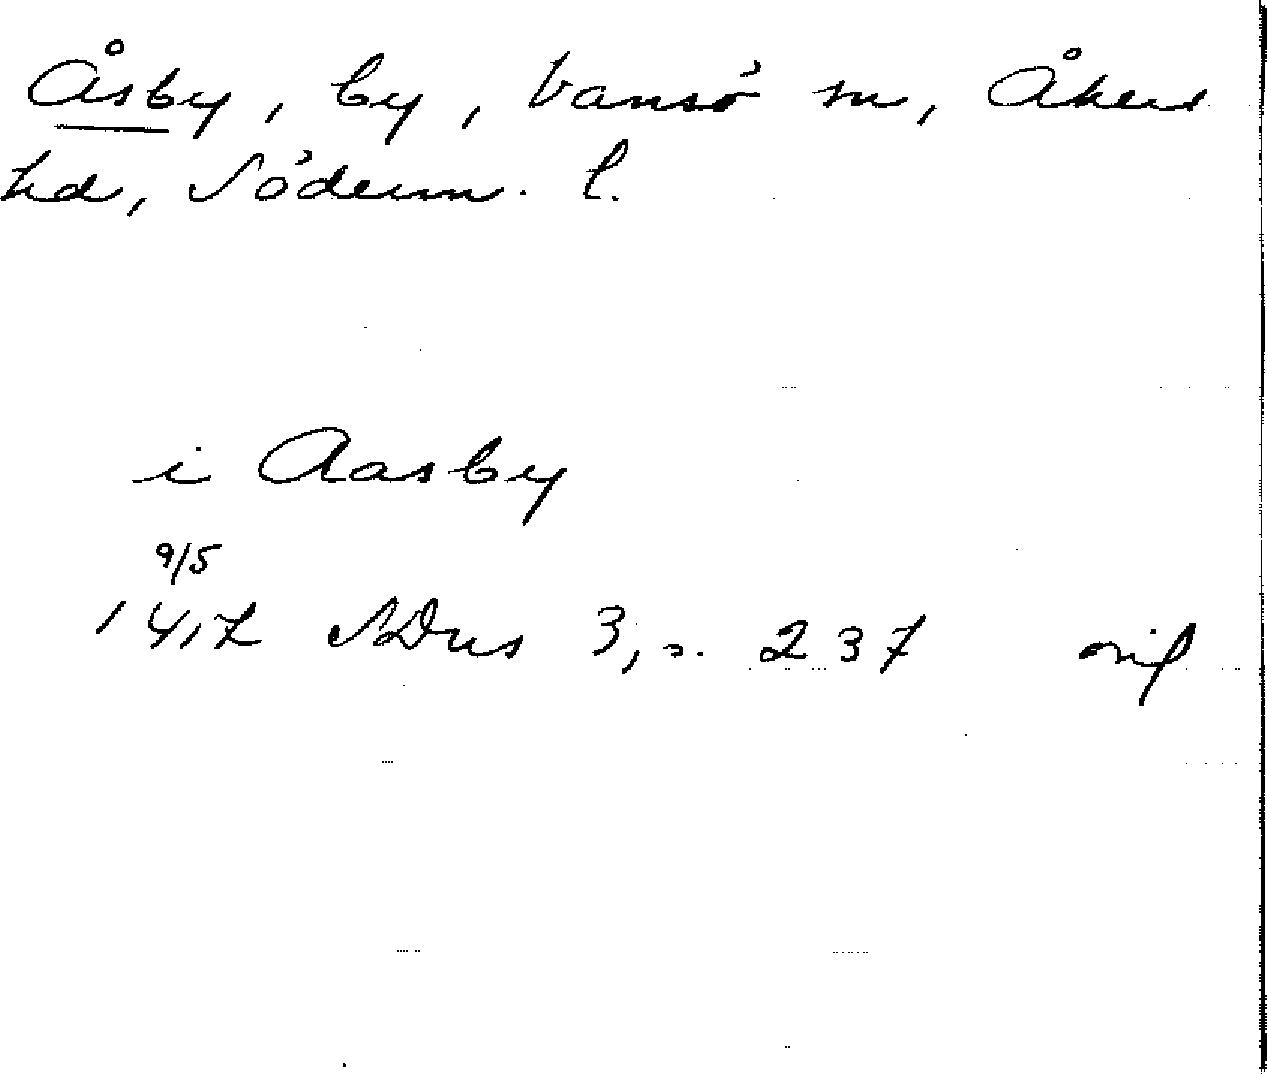 Åsby, by, Vansö sn, Åkers
hd, Söderm. l.
i Aasby
9/5
1417 SDns 3, s. 237 orig